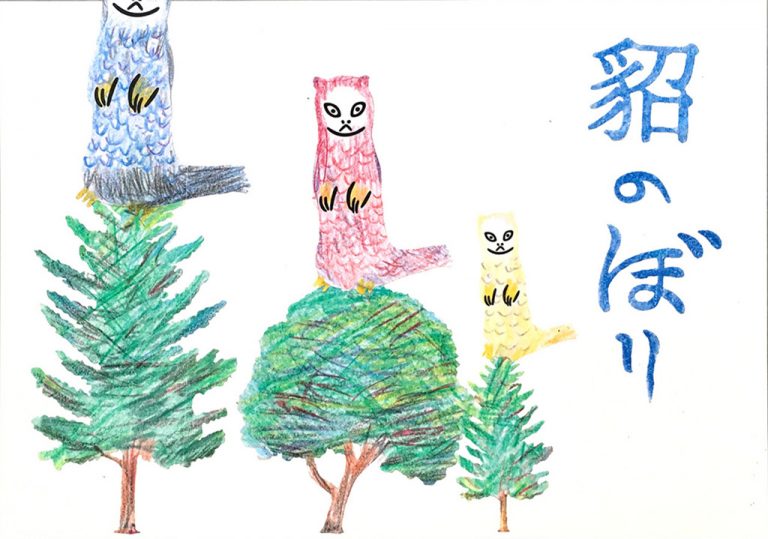 貂のぼり